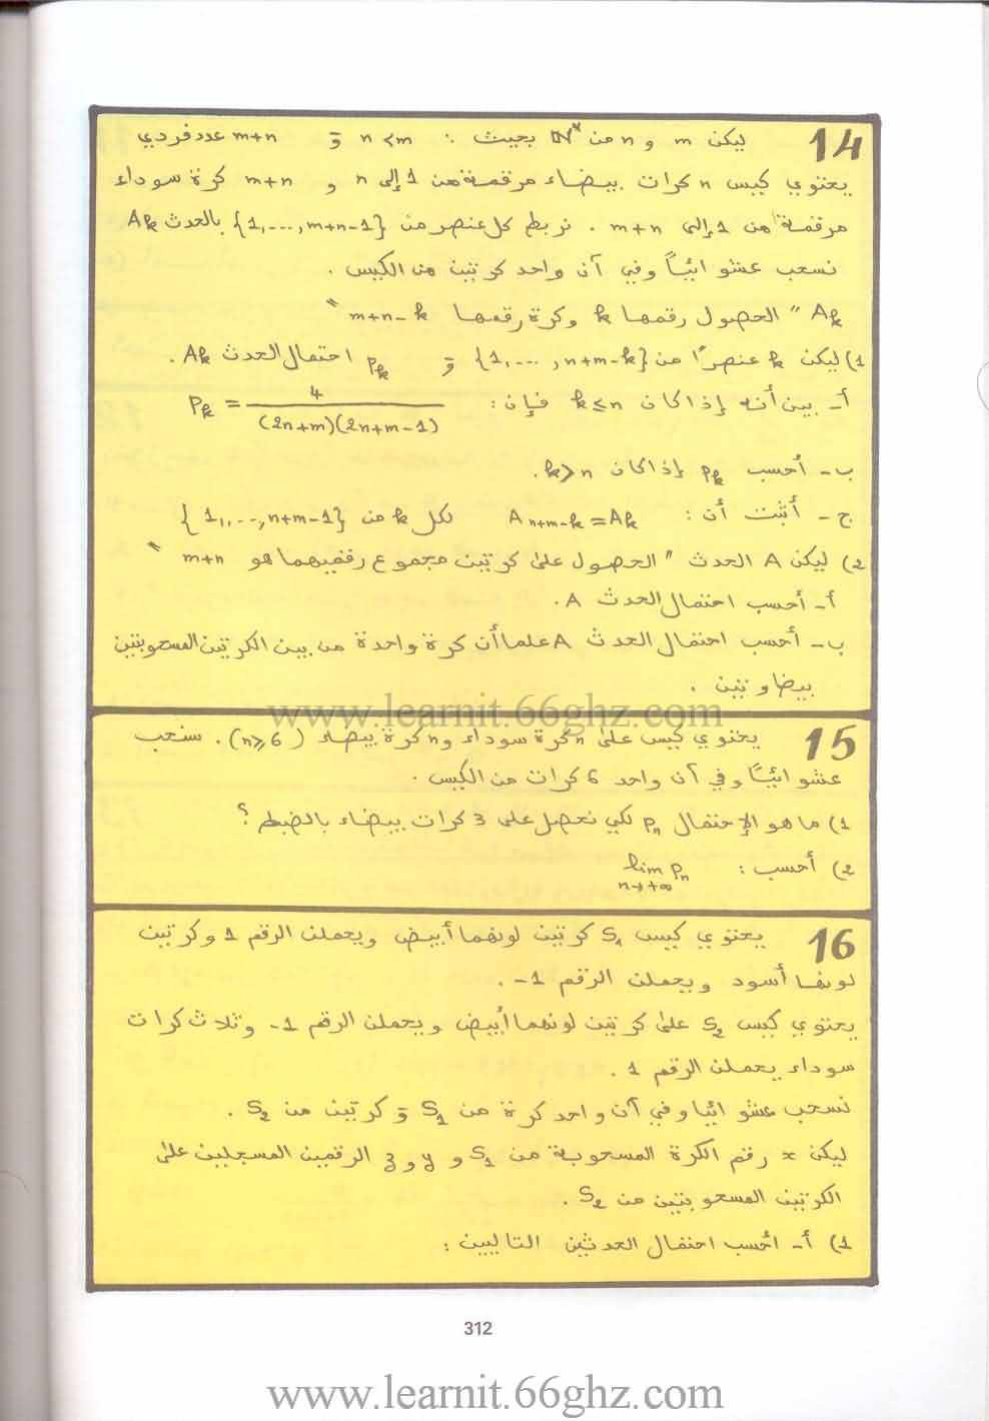 14 ليكن m و n من ℕ* بحيث : n < m و m+n عدد فردي
يحتوي كيس n كرات بيضاء مرقمة من 1 إلى n و m+n كرة سوداء
مرقمة من 1 إلى m+n . نربط كل عنصر من {1,...,m+n-1} بالحدث A_k
نسحب عشوائيًا وفي آن واحد كرتين من الكيس .
A_k " الحصول رقمها k وكرة رقمها m+n-k "
1) ليكن k عنصرًا من {1,...,n+m-k} و P_k احتمال الحدث A_k .
أ- بين أنه إذا كان k≤n فإن : P_k = 4/((2n+m)(2n+m-1))
ب- أحسب P_k إذا كان k>n .
ج- أثبت أن : A_{n+m-k} = A_k لكل k من {1,...,n+m-1}
2) ليكن A الحدث " الحصول على كرتين مجموع رقميهما هو m+n "
أ- أحسب احتمال الحدث A .
ب- أحسب احتمال الحدث A علما أن كرة واحدة من بين الكرتين المسحوبتين
بيضاوتين .
www.learnit.66ghz.com
15 يحتوي كيس على n كرة سوداء و n كرة بيضاء (n≥6) . نسحب
عشوائيًا وفي آن واحد 6 كرات من الكيس .
1) ما هو الإحتمال P_n لكي نحصل على 3 كرات بيضاء بالضبط ؟
2) أحسب : lim P_n
n→+∞
16 يحتوي كيس S₁ كرتين لونهما أبيض ويحملن الرقم 1 وكرتين
لونها أسود ويحملن الرقم 1- .
يحتوي كيس S₂ على كرتين لونهما أبيض ويحملن الرقم 1- وثلاث كرات
سوداء يحملن الرقم 1 .
نسحب عشوائيا وفي آن واحد كرة من S₁ و كرتين من S₂ .
ليكن x رقم الكرة المسحوبة من S₁ و y و z الرقمين المسجلين على
الكرتين المسحوبتين من S₂ .
1) أ- أحسب احتمال الحدثين التاليين :
312
www.learnit.66ghz.com